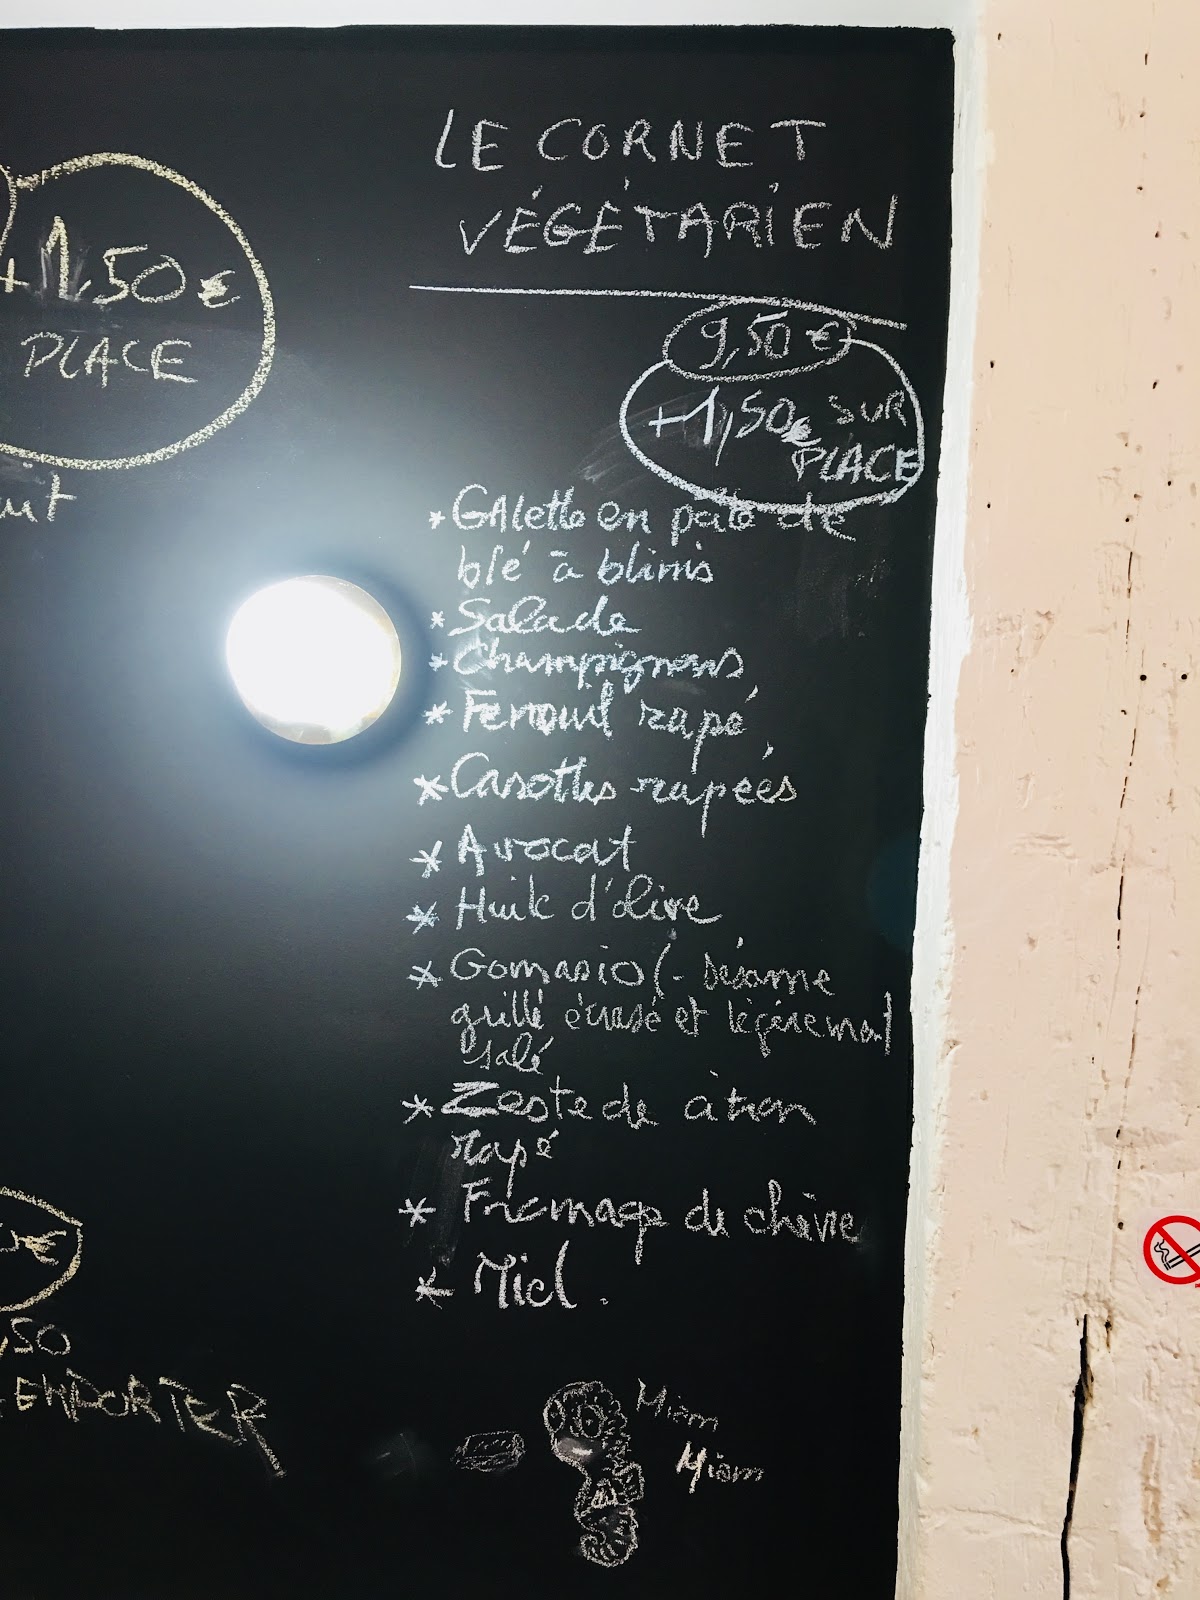 LE CORNET
VÉGÉTARIEN
9,50 €
+1,50€ SUR
PLACE
* GAlette en pâte de
blé à blinis
* Salade
* Champignons
* Fenouil rapé
* Carottes rapées
* Avocat
* Huile d'olive
* Gomasio (- sésame
grillé écrasé et légèrement
salé
* Zeste de citron
rapé
* Fromage de chèvre
* Miel.
Miam
Miam
+1,50€
PLACE
,50
EMPORTER